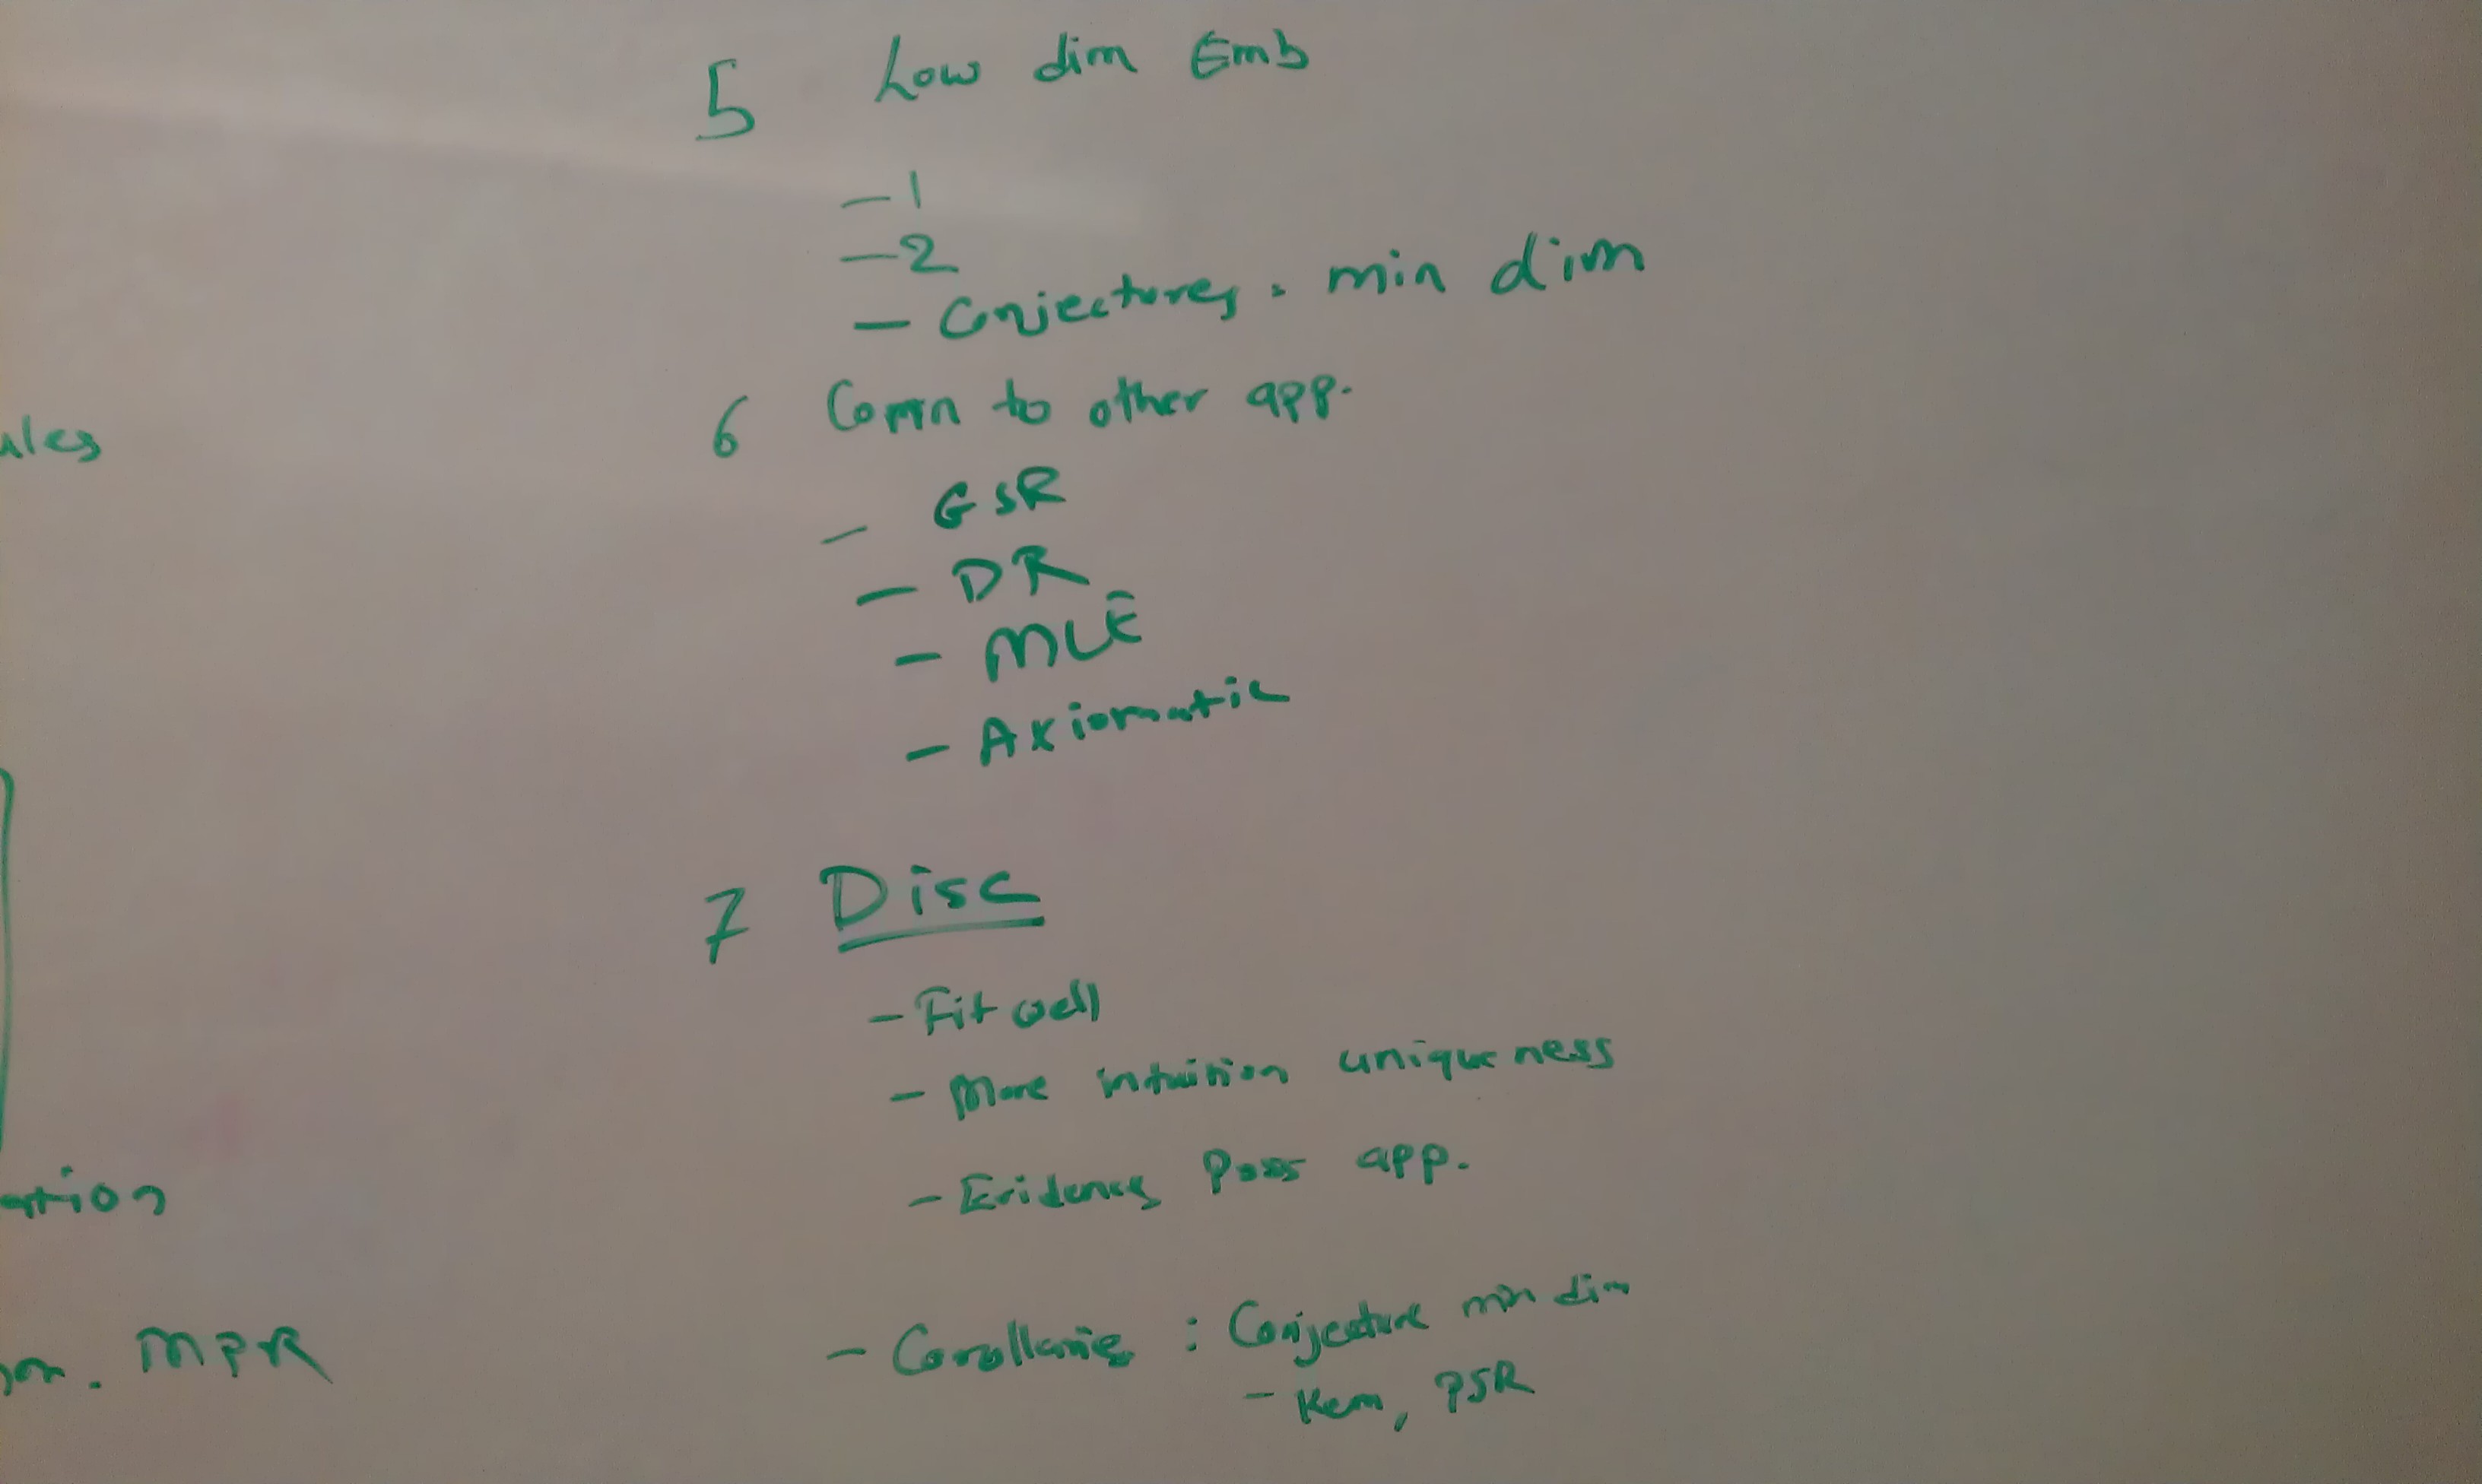 5 Low dim Emb
- 1
- 2
- Conjectures. min dim
6 Comn to other app.
- GSR
- DR
- MLE
- Axiomatic
7 Disc
- Fit well
- More intuition uniqueness
- Evidence Poss app.
- Corollaries : Conjecture min dim
- Kem, PSR
ules
ation
on. MPR